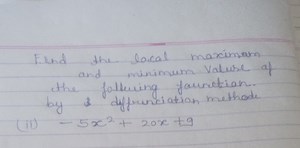 Find the local maximum
and minimum Value of
the following function
by differentiation methode
(ii) -5x² + 20x + 9